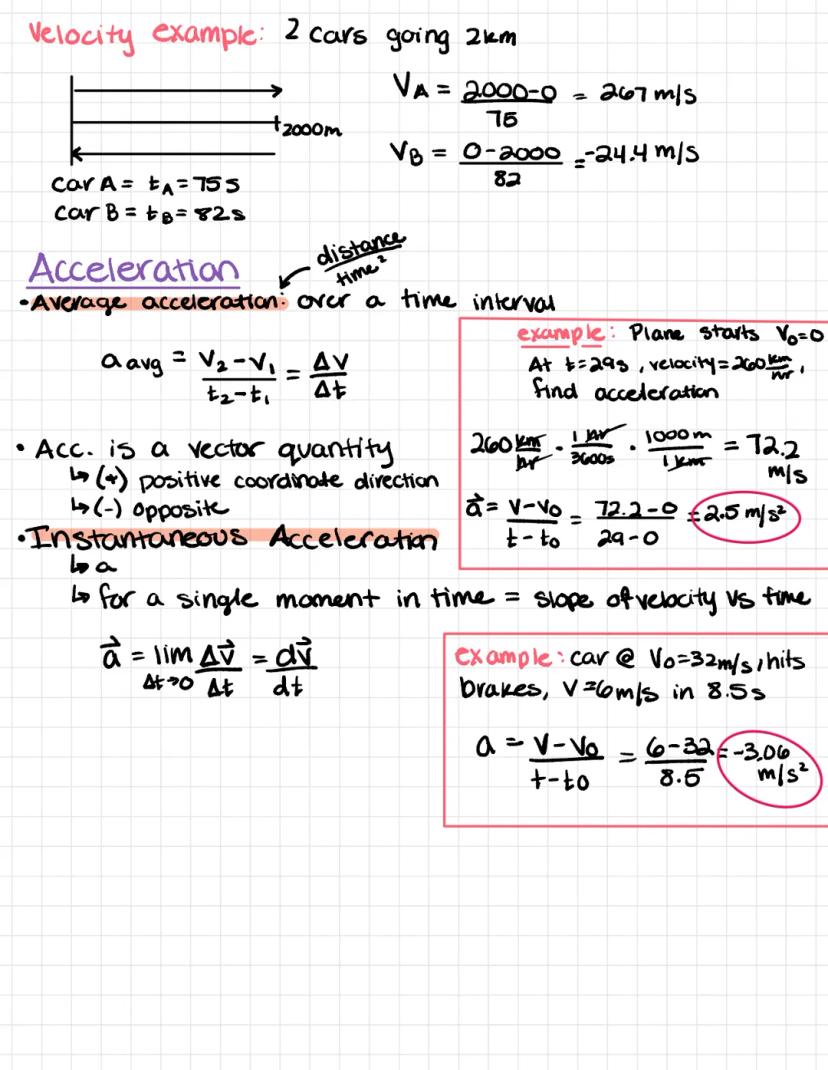 Velocity example: 2 cars going 2km
2000m
VA = 2000-0/75 = 267 m/s
VB = 0-2000/82 = -24.4 m/s
car A = tA = 75 s
car B = tB = 82s
Acceleration
distance/time²
• Average acceleration: over a time interval
a avg = V2-V1/t2-t1 = ΔV/Δt
example: Plane starts V0=0
At t=29s, velocity=260 km/hr,
find acceleration
260 km/hr · 1 hr/3600s · 1000m/1 km = 72.2 m/s
a⃗ = V-V0/t-t0 = 72.2-0/29-0 = 2.5 m/s²
• Acc. is a vector quantity
↳ (+) positive coordinate direction
↳ (-) opposite
• Instantaneous Acceleration
↳ a
↳ for a single moment in time = slope of velocity vs time
a⃗ = lim Δt→0 Δv⃗/Δt = dv⃗/dt
example: car @ V0=32m/s, hits
brakes, V=6m/s in 8.5s
a = V-V0/t-t0 = 6-32/8.5 = -3.06 m/s²